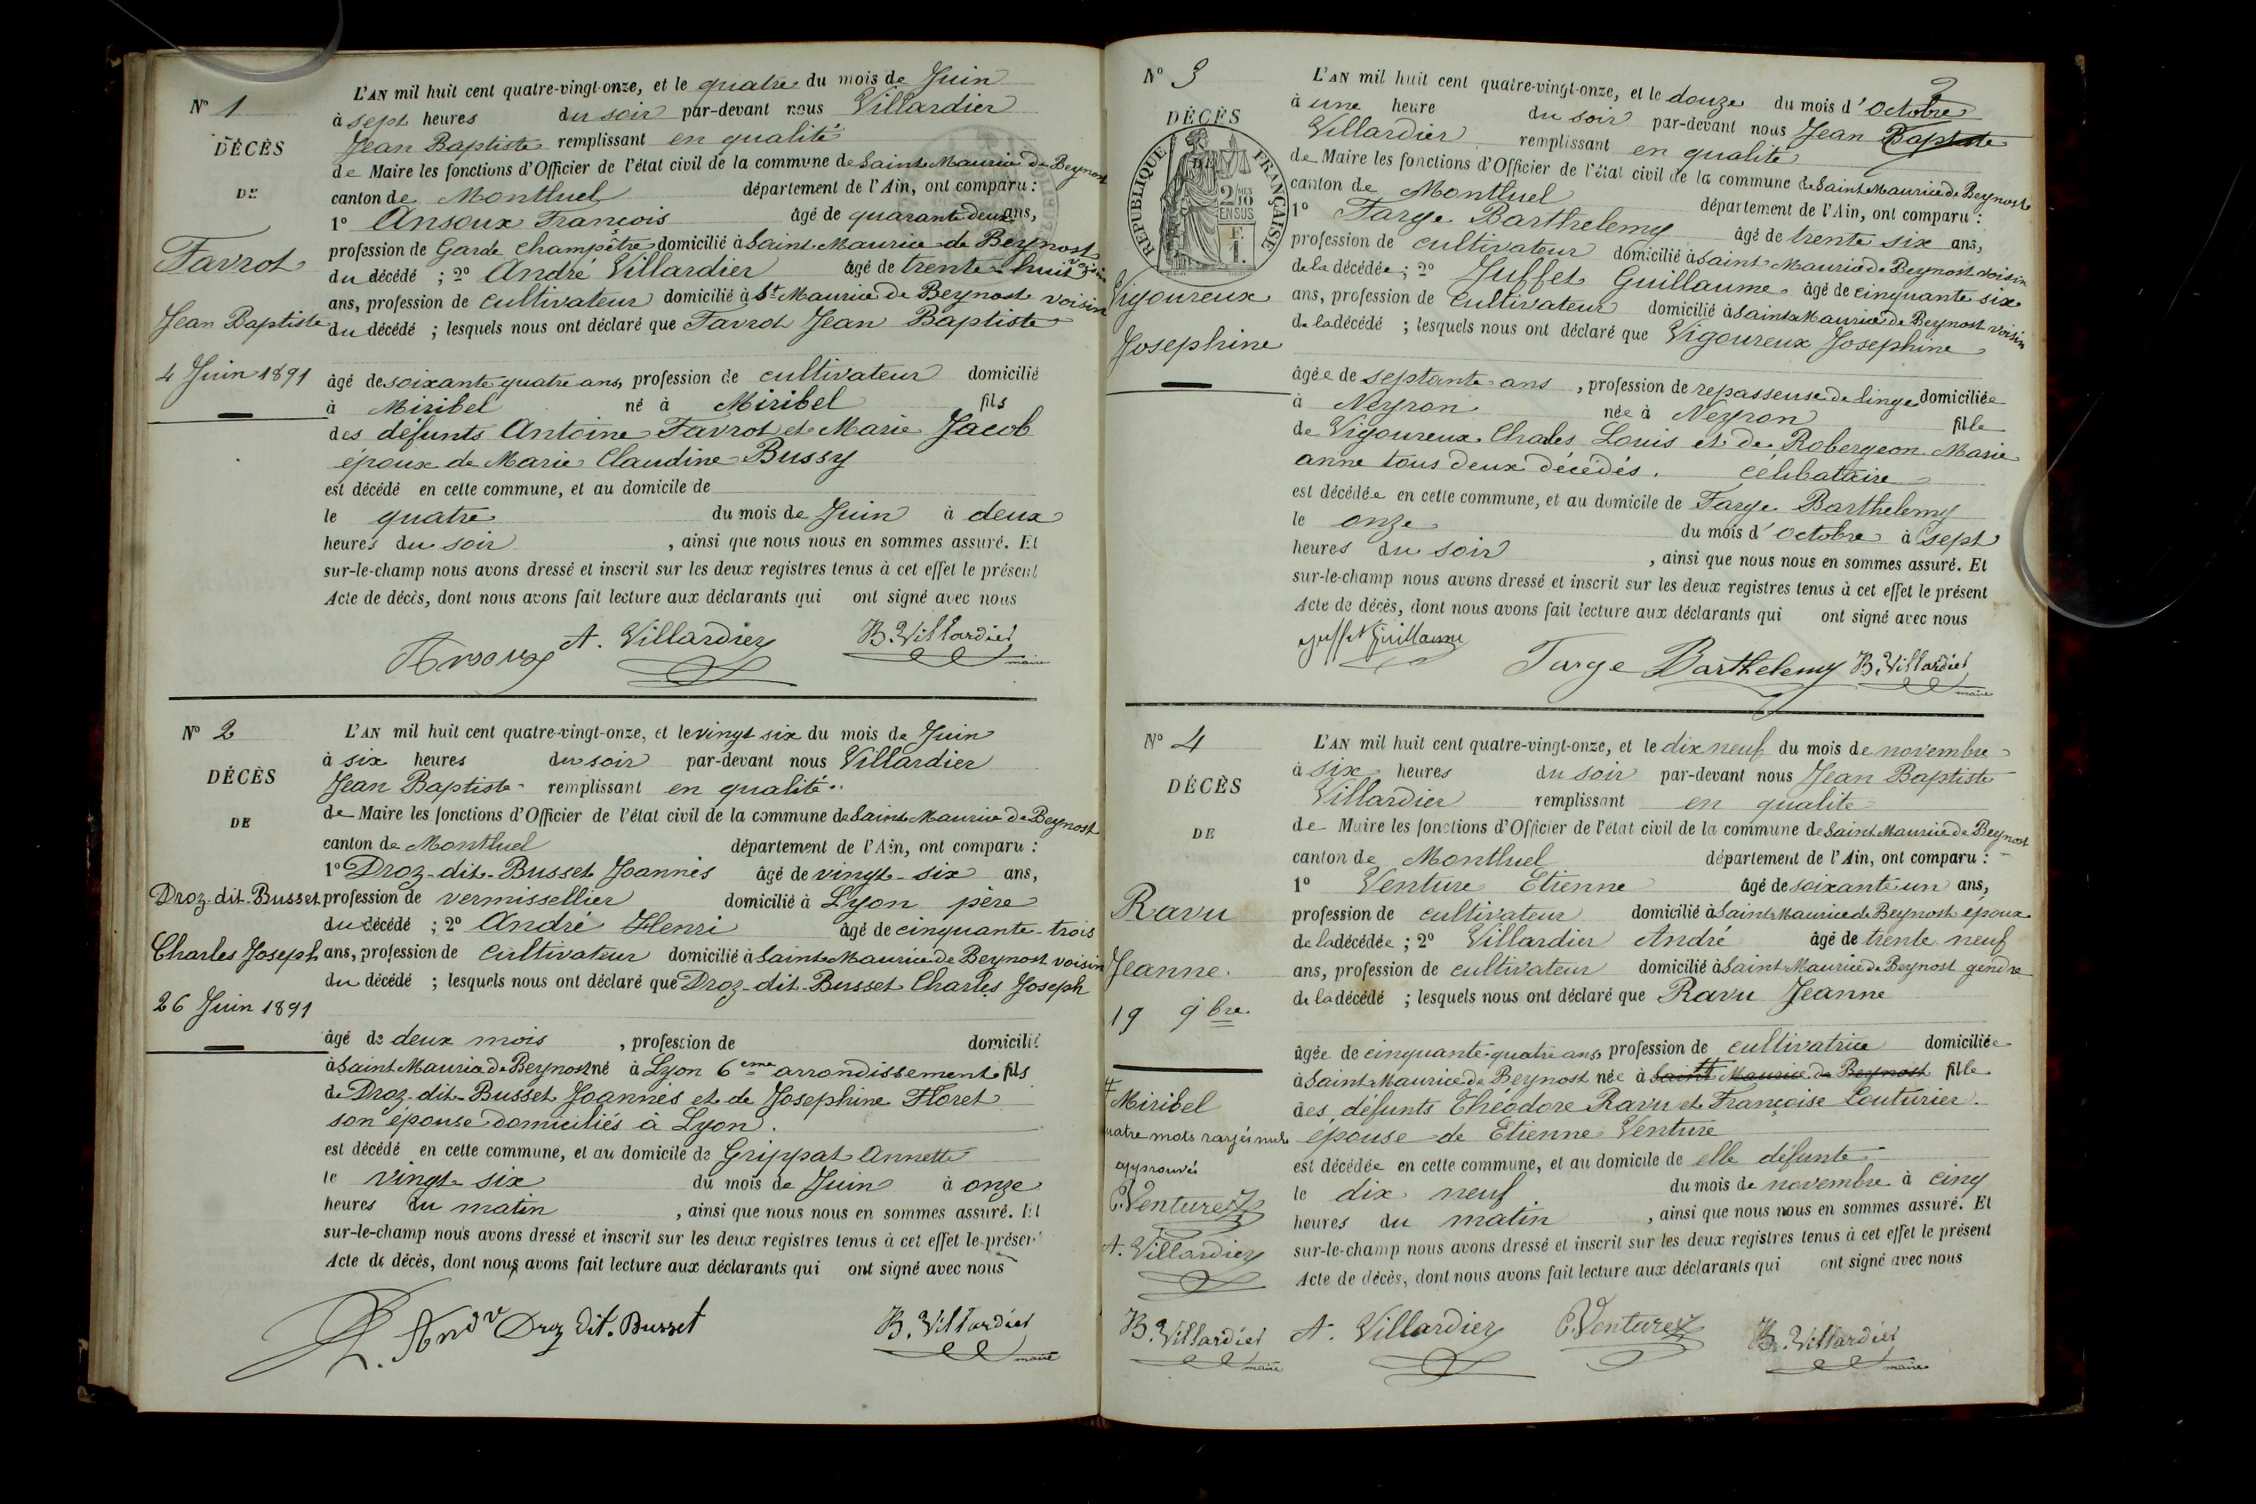 N° 1
DÉCÈS
DE
Favrot
Jean Baptiste
4 Juin 1891
L'AN mil huit cent quatre-vingt-onze, et le quatre du mois de Juin
à sept heures du soir par-devant nous Villardier
Jean Baptiste remplissant en qualité
de Maire les fonctions d'Officier de l'état civil de la commune de Saint Maurice de Beynost
canton de Montluel département de l'Ain, ont comparu :
1° Ansoux François âgé de quarante deux ans,
profession de Garde champêtre domicilié à Saint Maurice de Beynost voisin
du décédé ; 2° André Villardier âgé de trente-huit
ans, profession de cultivateur domicilié à St Maurice de Beynost voisin
du décédé ; lesquels nous ont déclaré que Favrot Jean Baptiste
âgé de soixante quatre ans, profession de cultivateur domicilié
à Miribel né à Miribel fils
des défunts Antoine Favrot et Marie Jacob
époux de Marie Claudine Bussy
est décédé en cette commune, et au domicile de
le quatre du mois de Juin à deux
heures du soir , ainsi que nous nous en sommes assuré. Et
sur-le-champ nous avons dressé et inscrit sur les deux registres tenus à cet effet le présent
Acte de décès, dont nous avons fait lecture aux déclarants qui ont signé avec nous
A. Villardier B. Villardier
maire
N° 2
DÉCÈS
DE
Droz-dit-Busset
Charles Joseph
26 Juin 1891
L'AN mil huit cent quatre-vingt-onze, et le vingt six du mois de Juin
à six heures du soir par-devant nous Villardier
Jean Baptiste remplissant en qualité
de Maire les fonctions d'Officier de l'état civil de la commune de Saint Maurice de Beynost
canton de Montluel département de l'Ain, ont comparu :
1° Droz-dit-Busset Joannès âgé de vingt-six ans,
profession de vermissellier domicilié à Lyon père
du décédé ; 2° André Henri âgé de cinquante-trois
ans, profession de cultivateur domicilié à Saint Maurice de Beynost voisin
du décédé ; lesquels nous ont déclaré que Droz-dit-Busset Charles Joseph
âgé de deux mois , profession de domicilié
à Saint Maurice de Beynost né à Lyon 6eme arrondissement fils
de Droz-dit-Busset Joannès et de Josephine Floret
son épouse domiciliés à Lyon.
est décédé en cette commune, et au domicile de Grippat Annette
le vingt six du mois de Juin à onze
heures du matin , ainsi que nous nous en sommes assuré. Et
sur-le-champ nous avons dressé et inscrit sur les deux registres tenus à cet effet le présent
Acte de décès, dont nous avons fait lecture aux déclarants qui ont signé avec nous
Droz dit. Busset B. Villardier
maire
2
N° 3
DÉCÈS
RÉPUBLIQUE FRANÇAISE
2/10 EN SUS
F. 1.
Vigoureux
Josephine
L'AN mil huit cent quatre-vingt-onze, et le douze du mois d'Octobre
à une heure du soir par-devant nous Jean Baptiste
Villardier remplissant en qualité
de Maire les fonctions d'Officier de l'état civil de la commune de Saint Maurice de Beynost
canton de Montluel département de l'Ain, ont comparu :
1° Farge Barthelemy âgé de trente six ans,
profession de cultivateur domicilié à Saint Maurice de Beynost voisin
de la décédée ; 2° Juffet Guillaume âgé de cinquante six
ans, profession de cultivateur domicilié à Saint Maurice de Beynost voisin
de la décédé ; lesquels nous ont déclaré que Vigoureux Josephine
âgée de septante ans , profession de repasseuse de linge domiciliée
à Neyron née à Neyron fille
de Vigoureux Charles Louis et de Robergeon Marie
anne tous deux décédés. célibataire
est décédée en cette commune, et au domicile de Farge Barthelemy
le onze du mois d'Octobre à sept
heures du soir , ainsi que nous nous en sommes assuré. Et
sur-le-champ nous avons dressé et inscrit sur les deux registres tenus à cet effet le présent
Acte de décès, dont nous avons fait lecture aux déclarants qui ont signé avec nous
Juffet Guillaume
Farge Barthelemy B. Villardier
maire
N° 4
DÉCÈS
DE
Ravu
Jeanne
19 9bre
Miribel
quatre mots rayés nuls
approuvés
E. Venture
A. Villardier
B. Villardier
maire
L'AN mil huit cent quatre-vingt-onze, et le dix neuf du mois de novembre
à six heures du soir par-devant nous Jean Baptiste
Villardier remplissant en qualité
de Maire les fonctions d'Officier de l'état civil de la commune de Saint Maurice de Beynost
canton de Montluel département de l'Ain, ont comparu :
1° Venture Etienne âgé de soixante un ans,
profession de cultivateur domicilié à Saint Maurice de Beynost époux
de la décédée ; 2° Villardier André âgé de trente neuf
ans, profession de cultivateur domicilié à Saint Maurice de Beynost gendre
de la décédé ; lesquels nous ont déclaré que Ravu Jeanne
âgée de cinquante quatre ans, profession de cultivatrice domiciliée
à Saint Maurice de Beynost née à Saint Maurice de Beynost fille
des défunts Théodore Ravu et Françoise Couturier
épouse de Etienne Venture
est décédée en cette commune, et au domicile de elle défunte
le dix neuf du mois de novembre à cinq
heures du matin , ainsi que nous nous en sommes assuré. Et
sur-le-champ nous avons dressé et inscrit sur les deux registres tenus à cet effet le présent
Acte de décès, dont nous avons fait lecture aux déclarants qui ont signé avec nous
A. Villardier E. Venture B. Villardier
maire